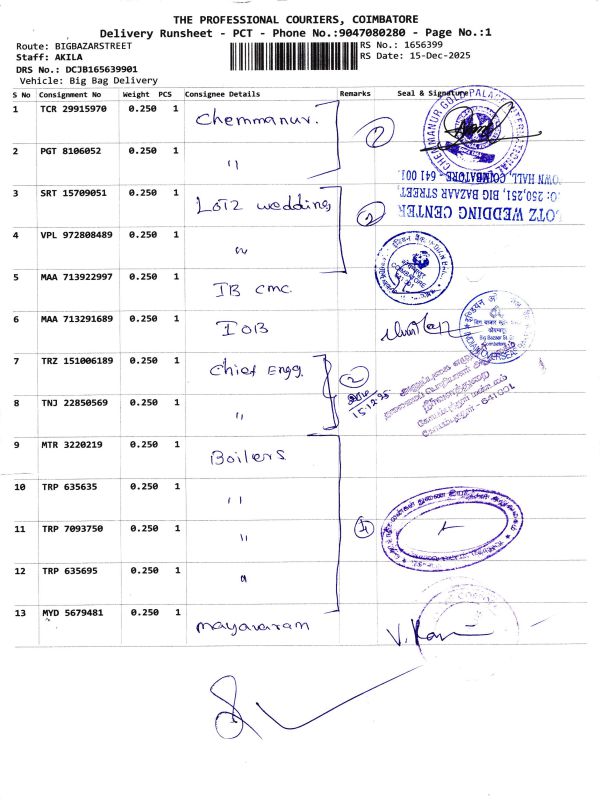 THE PROFESSIONAL COURIERS, COIMBATORE
Delivery Runsheet - PCT - Phone No.:9047080280 - Page No.:1
Route: BIGBAZARSTREET
RS No.: 1656399
Staff: AKILA
RS Date: 15-Dec-2025
DRS No.: DCJB165639901
Vehicle: Big Bag Delivery
S No Consignment No Weight PCS Consignee Details Remarks Seal & Signature
1 TCR 29915970 0.250 1 Chemmanur.
CHEMMANUR GOLD PALACE INTERNATIONAL
2
2 PGT 8106052 0.250 1 "
TOWN HALL, COIMBATORE - 641 001.
3 SRT 15709051 0.250 1 LOTZ wedding
NO: 250,251, BIG BAZAAR STREET
2
LOTZ WEDDING CENTER
4 VPL 972808489 0.250 1 "
COIMBATORE
5 MAA 713922997 0.250 1 IB cmc.
6 MAA 713291689 0.250 1 IOB
Big Bazaar St.
7 TRZ 151006189 0.250 1 Chief Engg.
2
15.12.25
8 TNJ 22850569 0.250 1 "
641 001
9 MTR 3220219 0.250 1 Boilers
10 TRP 635635 0.250 1 "
11 TRP 7093750 0.250 1 "
4
12 TRP 635695 0.250 1 "
13 MYD 5679481 0.250 1 mayavaram